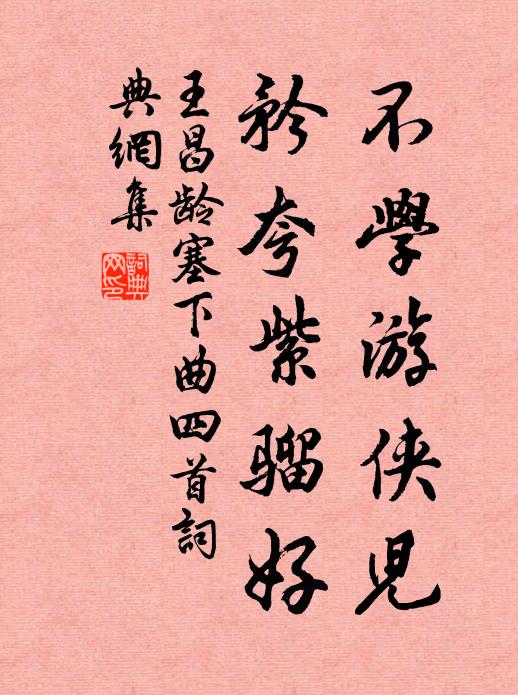 不學游俠兒
矜夸紫騮好
王昌齡塞下曲四首詞
典網集
詞典
网印